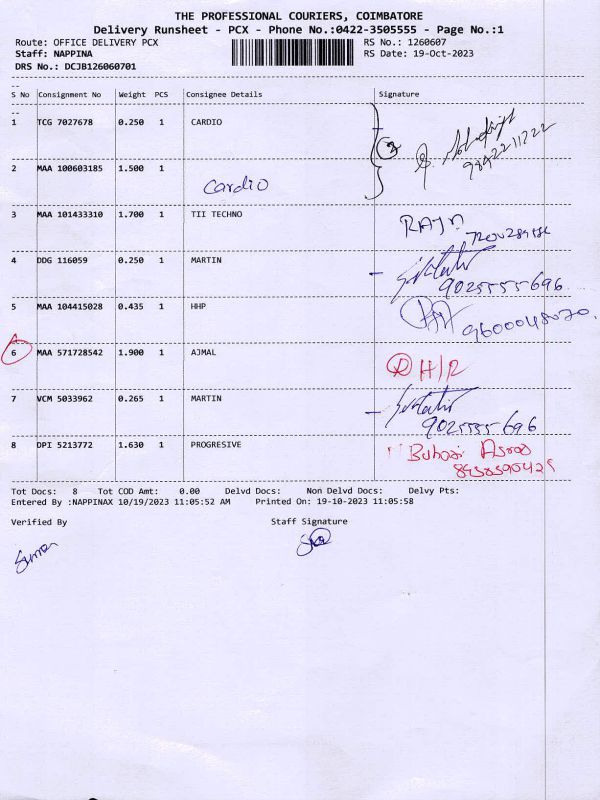 THE PROFESSIONAL COURIERS, COIMBATORE
Delivery Runsheet - PCX - Phone No.:0422-3505555 - Page No.:1
Route: OFFICE DELIVERY PCX RS No.: 1260607
Staff: NAPPINA RS Date: 19-Oct-2023
DRS No.: DCJB126060701
--
S No Consignment No Weight PCS Consignee Details Signature
--
1 TCG 7027678 0.250 1 CARDIO
9842211222
2 MAA 100603185 1.500 1
Cardio
3 MAA 101433310 1.700 1 TII TECHNO
4 DDG 116059 0.250 1 MARTIN
9025555696
5 MAA 104415028 0.435 1 HHP
6 MAA 571728542 1.900 1 AJMAL
7 VCM 5033962 0.265 1 MARTIN
9025555696
8 DPI 5213772 1.630 1 PROGRESIVE
Tot Docs: 8 Tot COD Amt: 0.00 Delvd Docs: Non Delvd Docs: Delvy Pts:
Entered By :NAPPINAX 10/19/2023 11:05:52 AM Printed On: 19-10-2023 11:05:58
Verified By Staff Signature